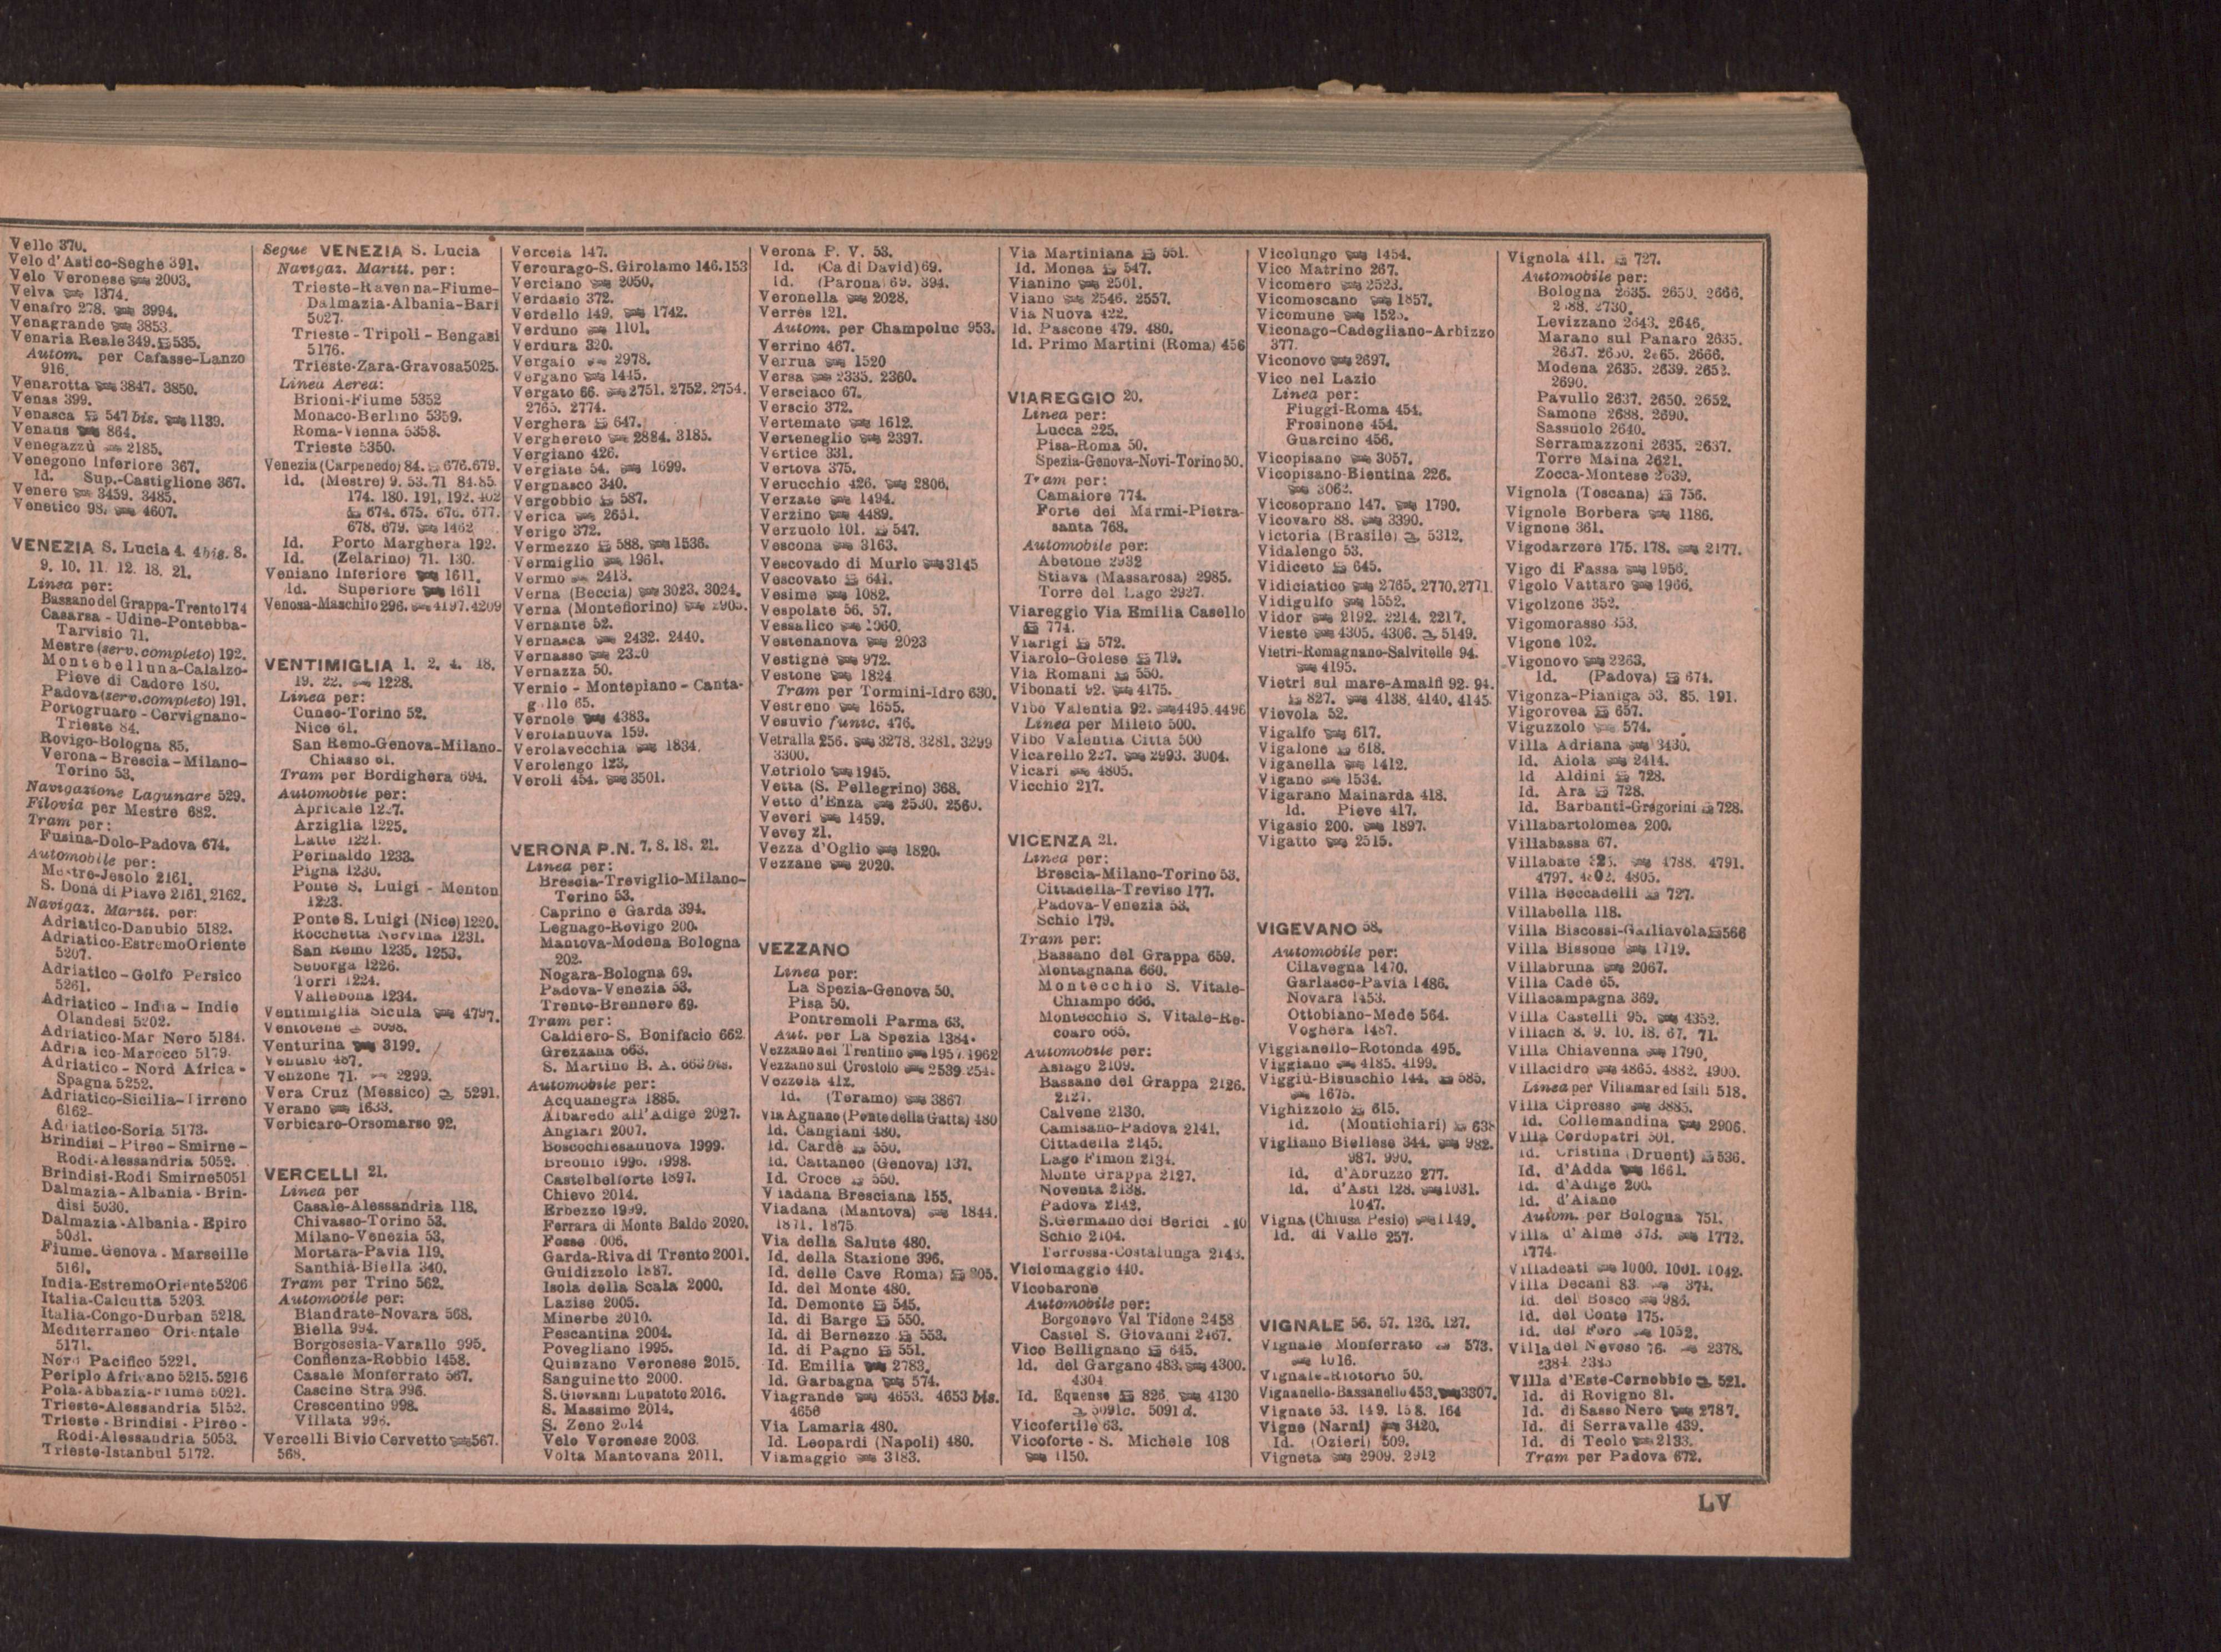 Vello 370.
Velo d'Astico-Seghe 391.
Velo Veronese 2003.
Velva 1374.
Venafro 278. 3994.
Venagrande 3853.
Venaria Reale 349. 535.
Autom. per Cafasse-Lanzo
916.
Venarotta 3847. 3850.
Venas 399.
Venasca 547 bis. 1139.
Venaus 864.
Venegazzù 2185.
Venegono Inferiore 367.
Id. Sup.-Castiglione 367.
Venere 3459. 3485.
Venetico 98. 4607.
VENEZIA S. Lucia 4. 4bis. 8.
9. 10. 11. 12. 18. 21.
Linea per:
Bassano del Grappa-Trento 174
Casarsa - Udine-Pontebba-
Tarvisio 71.
Mestre (serv. completo) 192.
Montebelluna-Calalzo-
Pieve di Cadore 180.
Padova (serv. completo) 191.
Portogruaro - Cervignano-
Trieste 84.
Rovigo-Bologna 85.
Verona - Brescia - Milano-
Torino 53.
Navigazione Lagunare 529.
Filovia per Mestre 682.
Tram per:
Fusina-Dolo-Padova 674.
Automobile per:
Mestre-Jesolo 2161.
S. Donà di Piave 2161. 2162.
Navigaz. Maritt. per:
Adriatico-Danubio 5182.
Adriatico-Estremo Oriente
5207.
Adriatico - Golfo Persico
5261.
Adriatico - India - Indie
Olandesi 5202.
Adriatico-Mar Nero 5184.
Adria ico-Marocco 5179.
Adriatico - Nord Africa -
Spagna 5252.
Adriatico-Sicilia-Tirreno
5162.
Adriatico-Soria 5173.
Brindisi - Pireo - Smirne -
Rodi-Alessandria 5052.
Brindisi-Rodi Smirne 5051
Dalmazia - Albania - Brin-
disi 5030.
Dalmazia - Albania - Epiro
5031.
Fiume - Genova - Marseille
5161.
India-Estremo Oriente 5206
Italia-Calcutta 5203.
Italia-Congo-Durban 5218.
Mediterraneo Orientale
5171.
Nord Pacifico 5221.
Periplo Africano 5215. 5216
Pola-Abbazia-Fiume 5021.
Trieste-Alessandria 5152.
Trieste - Brindisi - Pireo -
Rodi-Alessandria 5053.
Trieste-Istanbul 5172.
Segue VENEZIA S. Lucia
Navigaz. Maritt. per:
Trieste-Ravenna-Fiume-
Dalmazia-Albania-Bari
5027.
Trieste - Tripoli - Bengasi
5176.
Trieste-Zara-Gravosa 5025.
Linea Aerea:
Brioni-Fiume 5352
Monaco-Berlino 5359.
Roma-Vienna 5358.
Trieste 5350.
Venezia (Carpenedo) 84. 676. 679.
Id. (Mestre) 9. 53. 71 84. 85.
174. 180. 191, 192. 402
674. 675. 676. 677.
678. 679. 1462
Id. Porto Marghera 192.
Id. (Zelarino) 71. 130.
Veniano Inferiore 1611.
Id. Superiore 1611
Venosa-Maschito 296. 4197. 4209
VENTIMIGLIA 1. 2. 4. 18.
19. 22. 1228.
Linea per:
Cuneo-Torino 52.
Nice 61.
San Remo-Genova-Milano-
Chiasso 61.
Tram per Bordighera 694.
Automobile per:
Apricale 1227.
Arziglia 1225.
Latte 1221.
Perinaldo 1233.
Pigna 1230.
Ponte S. Luigi - Menton
1223.
Ponte S. Luigi (Nice) 1220.
Rocchetta Nervina 1231.
San Remo 1235. 1253.
Seborga 1226.
Torri 1224.
Vallebona 1234.
Ventimiglia Sicula 4797.
Ventotene 5098.
Venturina 3199.
Venusio 487.
Venzone 71. 2299.
Vera Cruz (Messico) 5291.
Verano 1633.
Verbicaro-Orsomarso 92.
VERCELLI 21.
Linea per
Casale-Alessandria 118.
Chivasso-Torino 53.
Milano-Venezia 53.
Mortara-Pavia 119.
Santhià-Biella 340.
Tram per Trino 562.
Automobile per:
Biandrate-Novara 568.
Biella 994.
Borgosesia-Varallo 995.
Confienza-Robbio 1458.
Casale Monferrato 567.
Cascine Stra 996.
Crescentino 998.
Villata 998.
Vercelli Bivio Cervetto 567.
568.
Verceia 147.
Vercurago-S. Girolamo 146. 153
Verciano 2050.
Verdasio 372.
Verdello 149. 1742.
Verduno 1101.
Verdura 320.
Vergaio 2978.
Vergano 1445.
Vergato 66. 2751. 2752. 2754.
2765. 2774.
Verghera 647.
Verghereto 2884. 3185.
Vergiano 426.
Vergiate 54. 1699.
Vergnasco 340.
Vergobbio 587.
Verica 2651.
Verigo 372.
Vermezzo 588. 1536.
Vermiglio 1961.
Vermo 2413.
Verna (Beccia) 3023. 3024.
Verna (Montefiorino) 2905.
Vernante 52.
Vernasca 2432. 2440.
Vernasso
Vernazza 50.
Vernio - Montepiano - Canta-
gallo 65.
Vernole 4383.
Verolanuova 159.
Verolavecchia 1834.
Verolengo 123.
Veroli 454. 3501.
VERONA P.N. 7. 8. 18. 21.
Linea per:
Brescia-Treviglio-Milano-
Torino 53.
Caprino e Garda 394.
Legnago-Rovigo 200.
Mantova-Modena Bologna
202.
Nogara-Bologna 69.
Padova-Venezia 53.
Trento-Brennero 69.
Tram per:
Caldiero-S. Bonifacio 662.
Grezzana 663.
S. Martino B. A. 663 bis.
Automobile per:
Acquanegra 1885.
Albaredo all'Adige 2027.
Angiari 2007.
Boscochiesanuova 1999.
Breonio 1996. 1998.
Castelbelforte 1897.
Chievo 2014.
Erbezzo 1999.
Ferrara di Monte Baldo 2020.
Fosse 006.
Garda-Riva di Trento 2001.
Guidizzolo 1887.
Isola della Scala 2000.
Lazise 2005.
Minerbe 2010.
Pescantina 2004.
Povegliano 1995.
Quinzano Veronese 2015.
Sanguinetto 2000.
S. Giovanni Lupatoto 2016.
S. Massimo 2014.
S. Zeno 2014
Velo Veronese 2003.
Volta Mantovana 2011.
Verona P. V. 53.
Id. (Ca di David) 69.
Id. (Parona) 69. 394.
Veronella 2028.
Verrès 121.
Autom. per Champoluc 953.
Verrino 467.
Verrua 1520
Versa 2335. 2360.
Versciaco 67.
Verscio 372.
Vertemate 1612.
Verteneglio 2397.
Vertice 331.
Vertova 375.
Verucchio 426. 2806.
Verzate 1494.
Verzino 4489.
Verzuolo 101. 547.
Vescona 3163.
Vescovado di Murlo 3145
Vescovato 641.
Vesime 1082.
Vespolate 56. 57.
Vessalico 1060.
Vestenanova 2023
Vestignè 972.
Vestone 1824
Tram per Tormini-Idro 630.
Vestreno 1655.
Vesuvio funic. 476.
Vetralla 256. 3278. 3281. 3299
3300.
Vetriolo 1945.
Vetta (S. Pellegrino) 368.
Vetto d'Enza 2530. 2560.
Veveri 1459.
Vevey 21.
Vezza d'Oglio 1820.
Vezzane 2020.
VEZZANO
Linea per:
La Spezia-Genova 50.
Pisa 50.
Pontremoli Parma 63.
Aut. per La Spezia 1384.
Vezzano nel Trentino 1957. 1962
Vezzano sul Crostolo 2539. 254
Vezzola 412.
Id. (Teramo) 3867
Via Agnano (Ponte della Gatta) 480
Id. Cangiani 480.
Id. Cardè 550.
Id. Cattaneo (Genova) 137.
Id. Croce 550.
Viadana Bresciana 155.
Viadana (Mantova) 1844.
1871. 1875
Via della Salute 480.
Id. della Stazione 396.
Id. delle Cave Roma) 305.
Id. del Monte 480.
Id. Demonte 545.
Id. di Barge 550.
Id. di Bernezzo 553.
Id. di Pagno 551.
Id. Emilia 2783.
Id. Garbagna 574.
Viagrande 4653. 4653 bis.
4656
Via Lamaria 480.
Id. Leopardi (Napoli) 480.
Viamaggio 3183.
Via Martiniana 551.
Id. Monea 547.
Vianino 2501.
Viano 2546. 2557.
Via Nuova 422.
Id. Pascone 479. 480.
Id. Primo Martini (Roma) 456
VIAREGGIO 20.
Linea per:
Lucca 225.
Pisa-Roma 50.
Spezia-Genova-Novi-Torino 50.
Tram per:
Camaiore 774.
Forte dei Marmi-Pietra-
santa 768.
Automobile per:
Abetone 2932
Stiava (Massarosa) 2985.
Torre del Lago 2927.
Viareggio Via Emilia Casello
774.
Viarigi 572.
Viarolo-Golese 719.
Via Romani 550.
Vibonati 92. 4175.
Vibo Valentia 92. 4495. 4496
Linea per Mileto 500.
Vibo Valentia Città 500
Vicarello 227. 2993. 3004.
Vicari 4805.
Vicchio 217.
VICENZA 21.
Linea per:
Brescia-Milano-Torino 53.
Cittadella-Treviso 177.
Padova-Venezia 53.
Schio 179.
Tram per:
Bassano del Grappa 659.
Montagnana 660.
Montecchio S. Vitale-
Chiampo 666.
Montecchio S. Vitale-Re-
coaro 665.
Automobile per:
Asiago 2109.
Bassano del Grappa 2126.
2127.
Calvene 2130.
Camisano-Padova 2141.
Cittadella 2145.
Lago Fimon 2134.
Monte Grappa 2127.
Noventa 2138.
Padova 2142.
S. Germano dei Berici
Schio 2104.
Terrossa-Costalunga 2143.
Viciomaggio 440.
Vicobarone
Automobile per:
Borgonovo Val Tidone 2458
Castel S. Giovanni 2467.
Vico Bellignano 645.
Id. del Gargano 483. 4300.
4304
Id. Equense 826. 4130
5091c. 5091 d.
Vicofertile 63.
Vicoforte - S. Michele 108
1150.
Vicolungo 1454.
Vico Matrino 267.
Vicomero 2523.
Vicomoscano 1857.
Vicomune 1525.
Viconago-Cadegliano-Arbizzo
377.
Viconovo 2697.
Vico nel Lazio
Linea per:
Fiuggi-Roma 454.
Frosinone 454.
Guarcino 456.
Vicopisano 3057.
Vicopisano-Bientina 226.
3062.
Vicosoprano 147. 1790.
Vicovaro 88. 3390.
Victoria (Brasile) 5312.
Vidalengo 53.
Vidiceto 645.
Vidiciatico 2765. 2770. 2771.
Vidigulfo 1552.
Vidor 2192. 2214. 2217.
Vieste 4305. 4306. 5149.
Vietri-Romagnano-Salvitelle 94.
4195.
Vietri sul mare-Amalfi 92. 94.
827. 4138. 4140. 4145.
Vievola 52.
Vigalfo 617.
Vigalone 618.
Viganella 1412.
Vigano 1534.
Vigarano Mainarda 418.
Id. Pieve 417.
Vigasio 200. 1897.
Vigatto 2515.
VIGEVANO 58.
Automobile per:
Cilavegna 1470.
Garlasco-Pavia 1486.
Novara 1453.
Ottobiano-Mede 564.
Voghera 1487.
Viggianello-Rotonda 495.
Viggiano 4185. 4199.
Viggiù-Bisuschio 144. 585.
1675.
Vighizzolo 615.
Id. (Montichiari) 638
Vigliano Biellese 344. 982.
987. 990.
Id. d'Abruzzo 277.
Id. d'Asti 128. 1031.
1047.
Vigna (Chiusa Pesio) 1149.
Id. di Valle 257.
VIGNALE 56. 57. 126. 127.
Vignale Monferrato 573.
1016.
Vignale-Riotorto 50.
Vignanello-Bassanello 453. 3307.
Vignate 53. 149. 158. 164
Vigne (Narni) 3420.
Id. (Ozieri) 509.
Vigneta 2909. 2912
Vignola 411. 727.
Automobile per:
Bologna 2635. 2650. 2666.
2688. 2730.
Levizzano 2643. 2646.
Marano sul Panaro 2635.
2637. 2650. 2665. 2666.
Modena 2635. 2639. 2652.
2690.
Pavullo 2637. 2650. 2652.
Samone 2688. 2690.
Sassuolo 2640.
Serramazzoni 2635. 2637.
Torre Maina 2621.
Zocca-Montese 2639.
Vignola (Toscana) 756.
Vignole Borbera 1186.
Vignone 361.
Vigodarzere 175. 178. 2177.
Vigo di Fassa 1956.
Vigolo Vattaro 1966.
Vigolzone 352.
Vigomorasso 353.
Vigone 102.
Vigonovo 2263.
Id. (Padova) 674.
Vigonza-Pianiga 53. 85. 191.
Vigorovea 657.
Viguzzolo 574.
Villa Adriana 3430.
Id. Aiola 2414.
Id Aldini 728.
Id. Ara 728.
Id. Barbanti-Gregorini 728.
Villabartolomea 200.
Villabassa 67.
Villabate 325. 4788. 4791.
4797. 4802. 4805.
Villa Beccadelli 727.
Villabella 118.
Villa Biscossi-Galliavola 566
Villa Bissone 1719.
Villabruna 2067.
Villa Cadè 65.
Villacampagna 369.
Villa Castelli 95. 4352.
Villach 8. 9. 10. 18. 67. 71.
Villa Chiavenna 1790.
Villacidro 4865. 4882. 4900.
Linea per Villamar ed Isili 518.
Villa Cipresso 3885.
Id. Collemandina 2906.
Villa Cordopatri 501.
Id. Cristina (Druent) 536.
Id. d'Adda 1661.
Id. d'Adige 200.
Id. d'Aiano
Autom. per Bologna 751.
Villa d'Almè 373. 1772.
1774.
Villadeati 1000. 1001. 1042.
Villa Decani 83. 374.
Id. del Bosco 986.
Id. del Conte 175.
Id. del Foro 1052.
Villa del Nevoso 76. 2378.
2384. 2385
Villa d'Este-Cernobbio 521.
Id. di Rovigno 81.
Id. di Sasso Nero 2787.
Id. di Serravalle 439.
Id. di Teolo 2133.
Tram per Padova 672.
LV